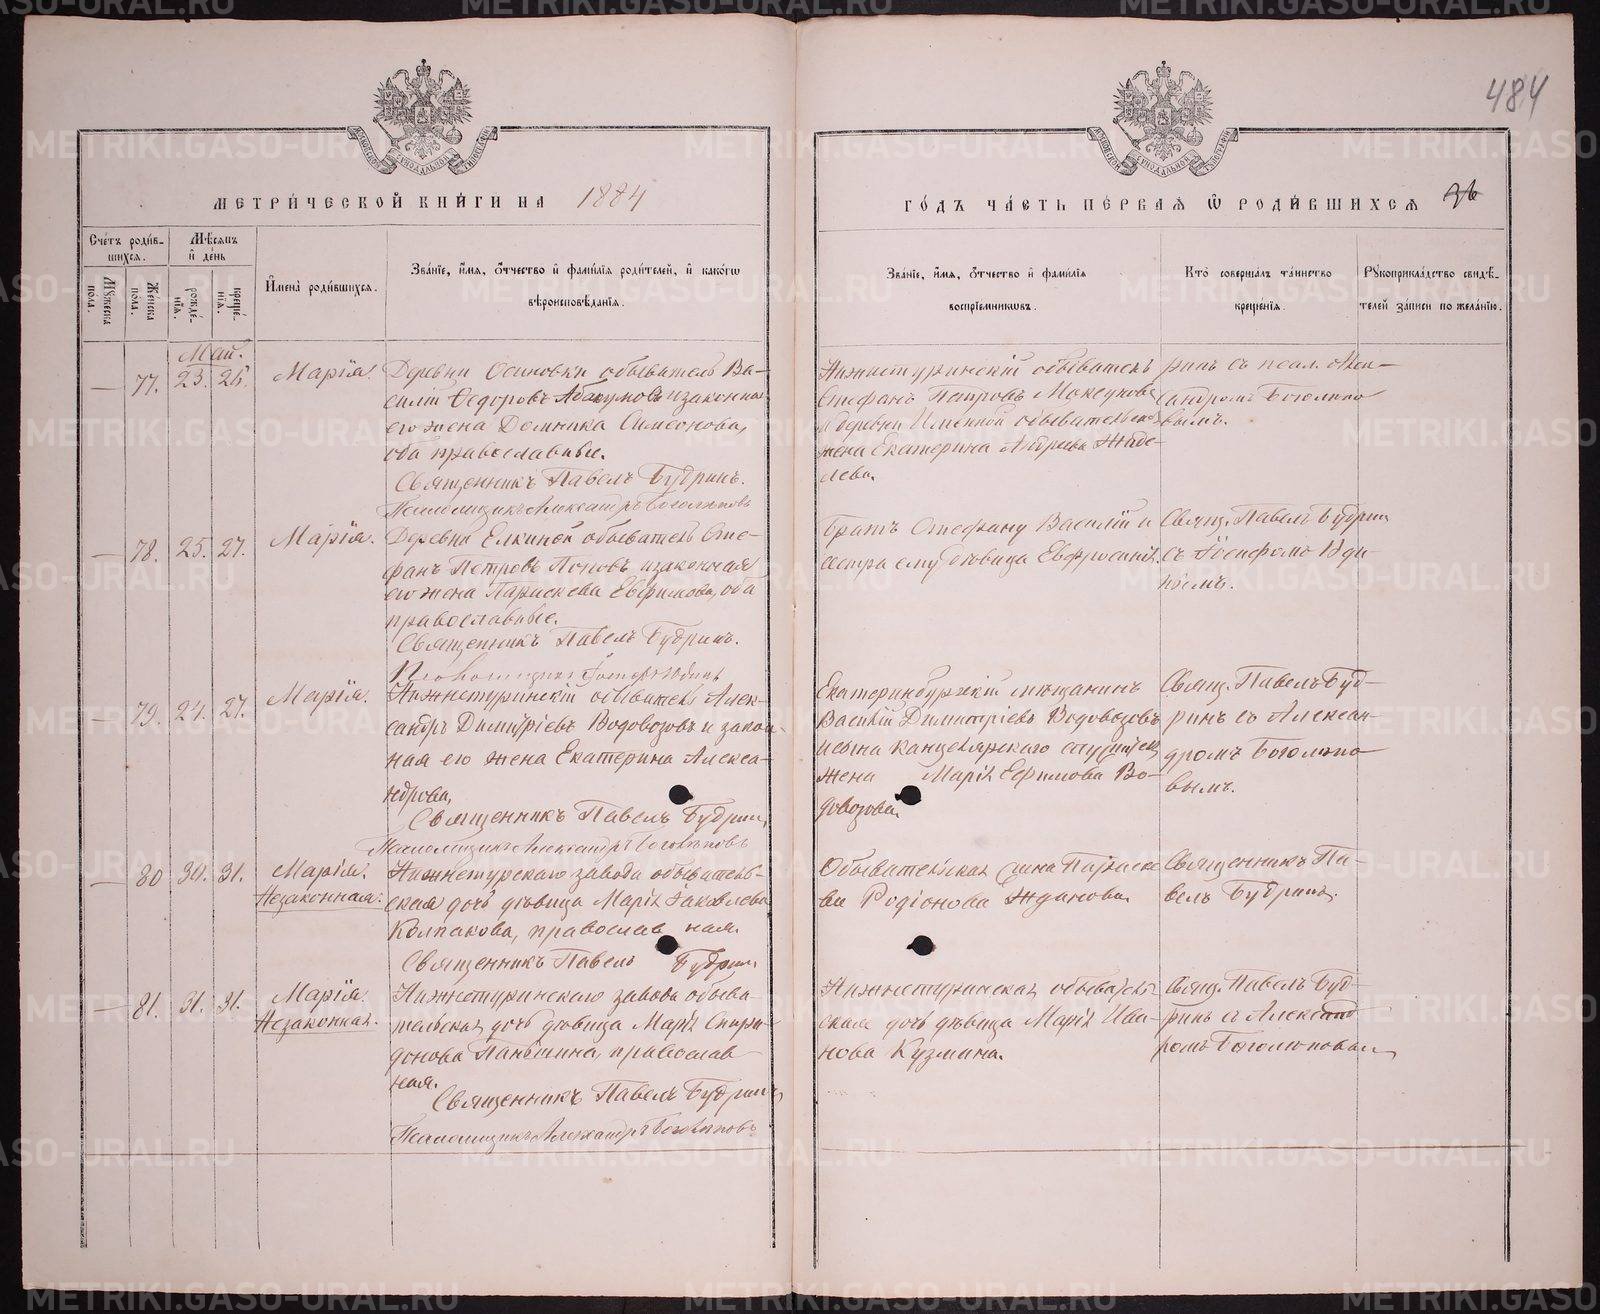 484
МЕТРИ́ЧЕСКОЙ КНИ́ГИ НА 1884
ГО́ДЪ ЧА́СТЬ ПЕ́РВАЯ Ѡ РОДИ́ВШИХСЯ
Сче́тъ роди́в-
шихся.
Мѣ́сяцъ
и҆ де́нь
Мꙋ́жеска
пола.
Же́нска
пола.
рожде́-
нїя.
креще́-
нїя.
И҆мена̀ роди́вшихся.
Зва́нїе, и҆́мя, ѻ҆́тчество и҆ фами́лїя роди́телей, и҆ како́гѡ
вѣроисповѣ́данїя.
Зва́нїе, и҆́мя, ѻ҆́тчество и҆ фами́лїя
воспрїе́мниковъ.
Кто̀ соверша́лъ та́инство
креще́нїя.
Рꙋкоприкла́дство свидѣ́-
телей за́писи по жела́нїю.
Май.
— 77. 23. 25. Марія.
Деревни Осиновки обыватель Ва-
силій Ѳедоровъ Абакумовъ и законная
его жена Домника Симеонова,
оба православные.
Священникъ Павелъ Будринъ.
Псаломщикъ Александръ Боголѣповъ
Нижнетуринскій обыватель
Стефанъ Петровъ
и деревни
жена Екатерина
лева.
ринъ съ псал. Алек-
сандромъ Боголѣпо
вымъ.
— 78. 25. 27. Марія.
Деревни Елкиной обыватель Сте-
фанъ Петровъ Поповъ и законная
его жена Параскева Евфимова, оба
православные.
Священникъ Павелъ Будринъ.
Братъ Стефану Василій и
сестра ему дѣвица Евфросинія.
Свящ. Павелъ Будрин
съ Іосифомъ Вди-
нымъ.
— 79. 24. 27. Марія.
Нижнетуринскій обыватель Алек-
сандръ Димитріевъ Водовозовъ и закон-
ная его жена Екатерина Алекса-
ндрова,
Священникъ Павелъ Будрин,
Псаломщикъ Александръ Боголѣповъ
Екатеринбургскій мѣщанинъ
Василій Димитріевъ Водовозовъ
и сына канцелярскаго служителя
жена Марія Ефимова Во-
довозова.
Свящ. Павелъ Буд-
ринъ съ Алексан-
дромъ Боголѣпо
вымъ.
— 80 30. 31. Марія.
Незаконная.
Нижнетурскаго завода обыватель-
ская дочь дѣвица Марія Іаковлева
Колпакова, православ ная.
Священникъ Павелъ Будрин.
Обывательская жена Параске
ва Родіонова Жданова.
Священникъ Па-
велъ Будринъ.
— 81. 31. 31. Марія.
Незаконная.
Нижнетуринскаго завода обыва-
тельская дочь дѣвица Марія Спири-
донова Паньшина, православ-
ная.
Священникъ Павелъ Будринъ,
Псаломщикъ Александръ Боголѣповъ
Нижнетуринская обыватель
ская дочь дѣвица Марія Ива-
нова Кузмина.
Свящ. Павелъ Буд-
ринъ съ Александ
ромъ Боголѣповым
METRIKI.GASO-URAL.RU